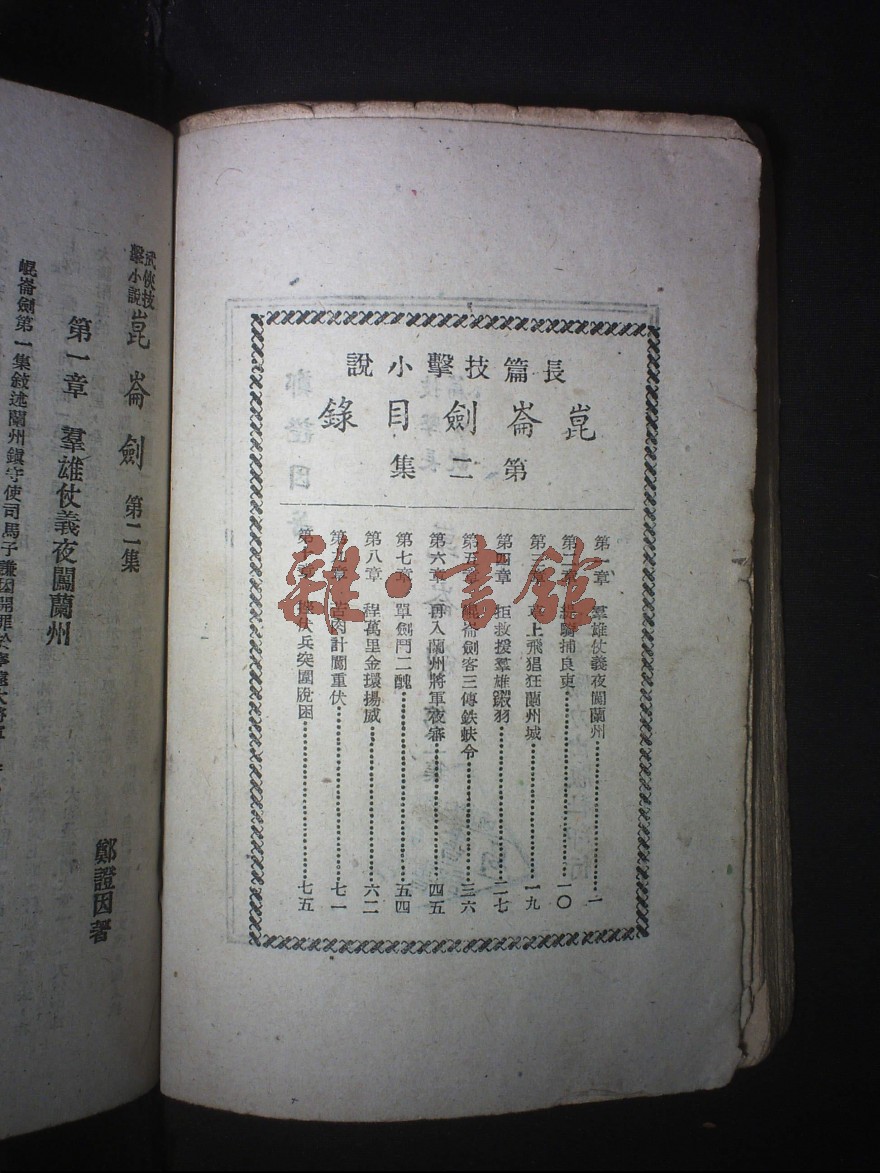 長篇技擊小說
崑崙劍目錄
第二集
第一章 羣雄仗義夜闖蘭州……一
第二章 騎捕良吏……一〇
第三章 草上飛猖狂蘭州城……一九
第四章 拒救援羣雄鎩羽……二七
第五章 崑崙劍客三傳鉄蚨令……三六
第六章 再入蘭州將軍夜審……四五
第七章 單劍鬥二醜……五四
第八章 程萬里金環揚威……六二
第九章 苦肉計闖重伏……七一
第十章 伏兵突圍脫困……七五
雜·書館
武俠技擊小說 崑崙劍 第二集
鄭證因著
第一章 羣雄仗義夜闖蘭州
崐崙劍第一集敘述蘭州鎮守使司馬子謙因開罪於寧遠大將軍